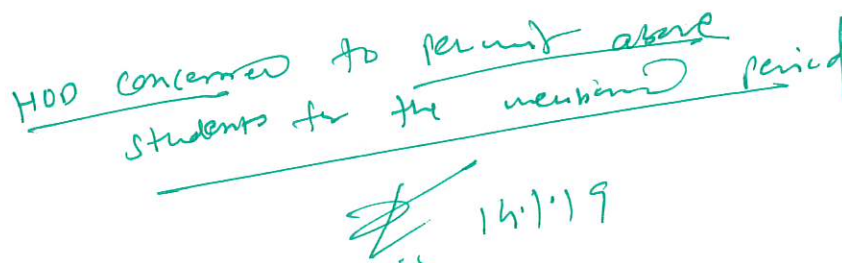 HOD concerned to permit above
students for the mentioned period
14.1.19